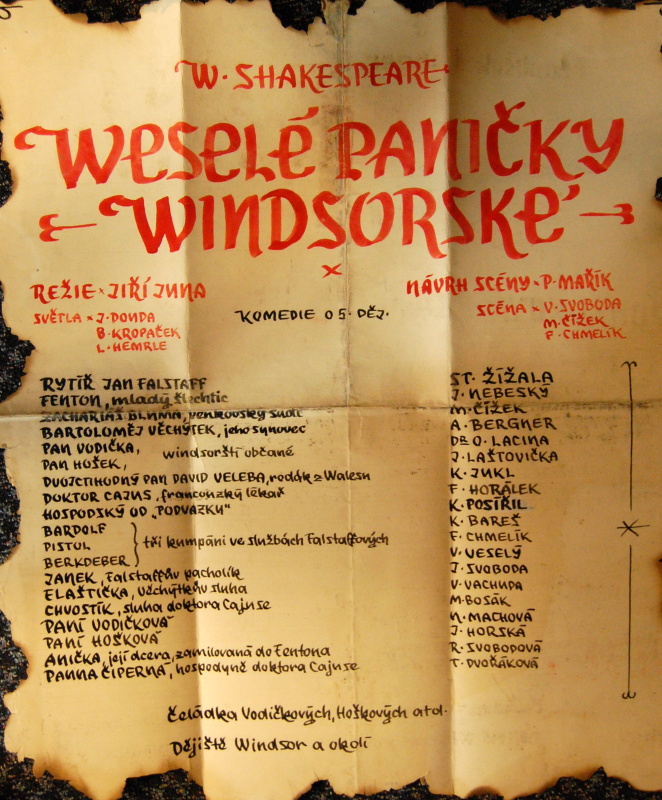 W. SHAKESPEARE
WESELÉ PANIČKY
WINDSORSKÉ
×
REŽIE × JIŘÍ JUNA
SVĚTLA × J. DONDA
B. KROPAČEK
L. HEMRLE
KOMEDIE O 5. DĚJ.
NÁVRH SCÉNY × P. MAŘÍK
SCÉNA × V. SVOBODA
M. ČÍŽEK
F. CHMELÍK
RYTÍŘ JAN FALSTAFF ST. ŽÍŽALA
FENTON, mladý šlechtic J. NEBESKÝ
ZACHARIÁŠ BLMMA, venkovský sudí M. ČÍŽEK
BARTOLOMĚJ VĚCHÝTEK, jeho synovec A. BERGNER
PAN VODIČKA, windsorští občané DR. O. LACINA
PAN HOŠEK, J. LAŠTOVIČKA
DVOJCTIHODNÝ PAN DAVID VELEBA, rodák z Walesu K. JUKL
DOKTOR CAJUS, francouzský lékař F. HORÁLEK
HOSPODSKÝ OD „PODVAZKU“ K. POSÍŘIL
BARDOLF K. BAREŠ
PISTOL tři kumpáni ve službách Falstaffových F. CHMELÍK
BERKDEBER V. VESELÝ
JANEK, Falstaffův pacholík J. SVOBODA
ELAŠTIČKA, Věchýtkův sluha V. VACHUDA
CHVOSTÍK, sluha doktora Cajuse M. BOSÁK
PANÍ VODIČKOVÁ N. MACHOVÁ
PANÍ HOŠKOVÁ J. HORSKÁ
ANIČKA, její dcera, zamilovaná do Fentona R. SVOBODOVÁ
PANNA ČIPERNÁ, hospodyně doktora Cajuse T. DVOŘÁKOVÁ
Čeládka Vodičkových, Hoškových atd.
Dějiště Windsor a okolí